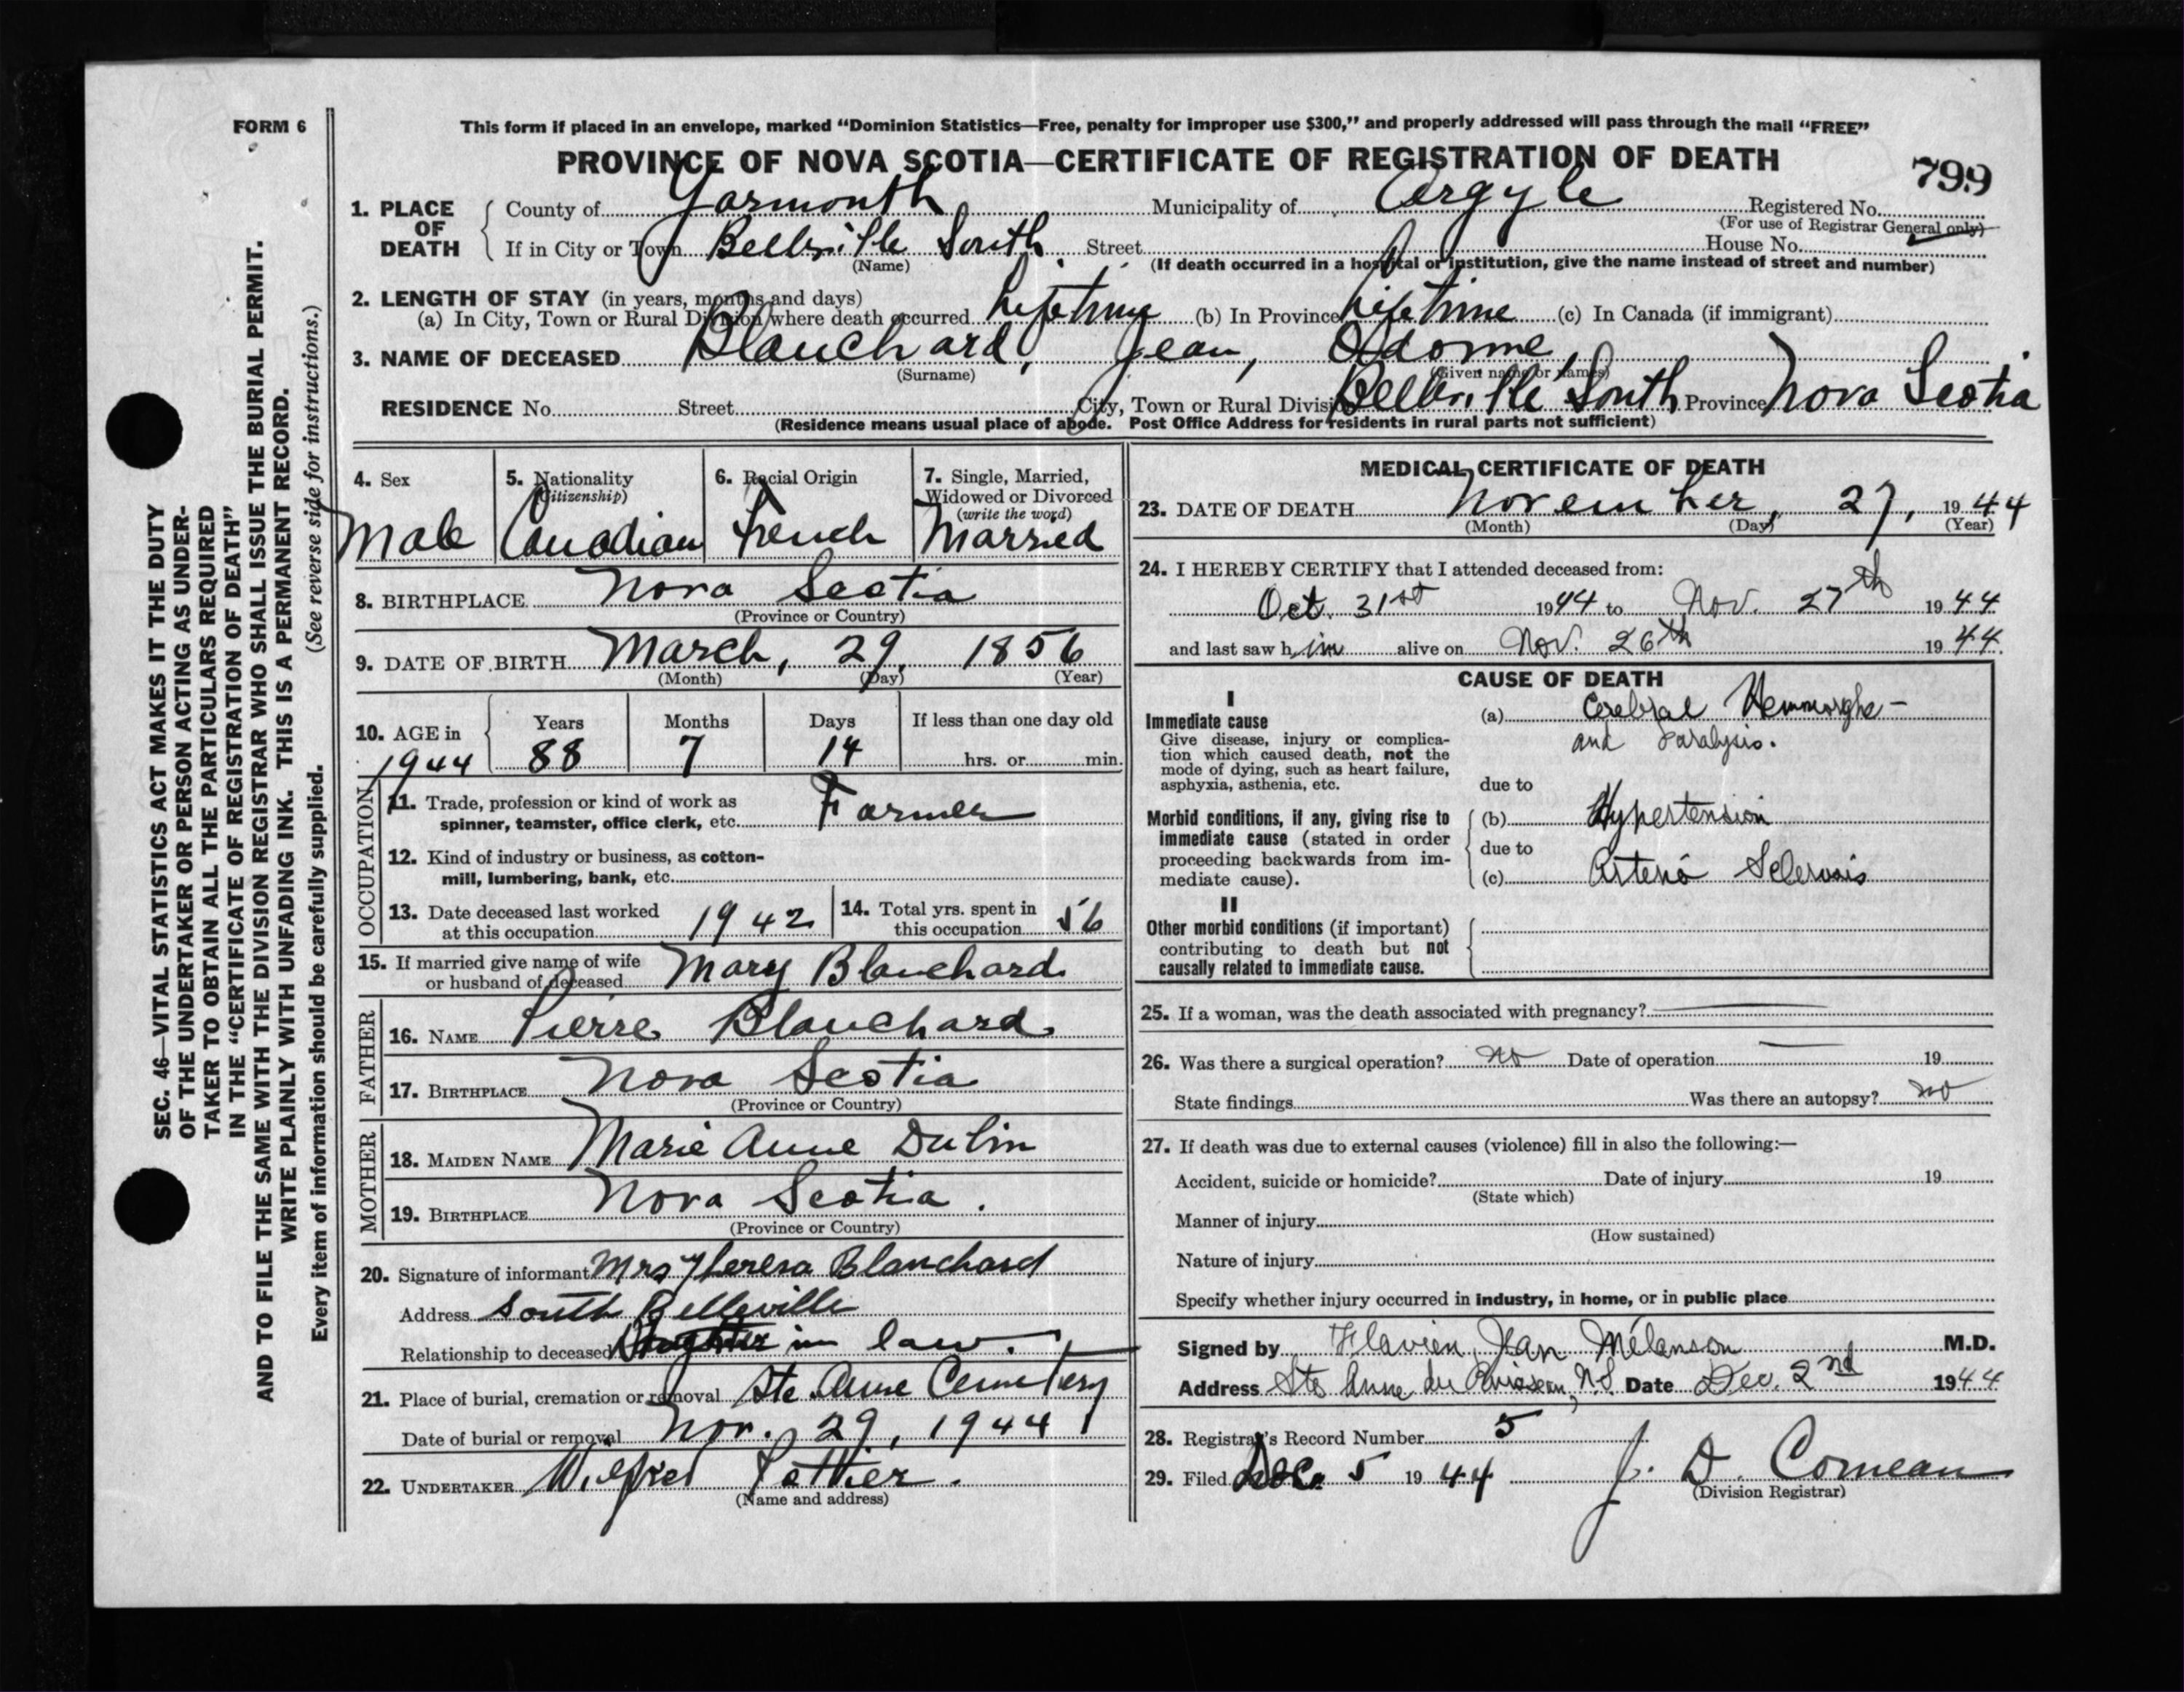 FORM 6
This form if placed in an envelope, marked “Dominion Statistics—Free, penalty for improper use $300,” and properly addressed will pass through the mail “FREE”
PROVINCE OF NOVA SCOTIA—CERTIFICATE OF REGISTRATION OF DEATH
799
1. PLACE OF DEATH { County of Yarmouth Municipality of Argyle Registered No.
(For use of Registrar General only)
If in City or Town Bellville South. Street House No.
(Name) (If death occurred in a hospital or institution, give the name instead of street and number)
2. LENGTH OF STAY (in years, months and days)
(a) In City, Town or Rural Division where death occurred Lifetime (b) In Province Lifetime (c) In Canada (if immigrant)
3. NAME OF DECEASED Blanchard, Jean, Adonne,
(Surname) (Given name or names)
RESIDENCE No. Street City, Town or Rural Division Bellville South Province Nova Scotia
(Residence means usual place of abode. Post Office Address for residents in rural parts not sufficient)
SEC. 46—VITAL STATISTICS ACT MAKES IT THE DUTY
OF THE UNDERTAKER OR PERSON ACTING AS UNDER-
TAKER TO OBTAIN ALL THE PARTICULARS REQUIRED
IN THE “CERTIFICATE OF REGISTRATION OF DEATH”
AND TO FILE THE SAME WITH THE DIVISION REGISTRAR WHO SHALL ISSUE THE BURIAL PERMIT.
WRITE PLAINLY WITH UNFADING INK. THIS IS A PERMANENT RECORD.
Every item of information should be carefully supplied. (See reverse side for instructions.)
4. Sex
Male
5. Nationality
(Citizenship)
Canadian
6. Racial Origin
French
7. Single, Married,
Widowed or Divorced
(write the word)
Married
8. BIRTHPLACE Nova Scotia
(Province or Country)
9. DATE OF BIRTH March, 29, 1856
(Month) (Day) (Year)
10. AGE in { Years Months Days If less than one day old
1944 88 7 14 hrs. or min.
OCCUPATION
11. Trade, profession or kind of work as
spinner, teamster, office clerk, etc. Farmer
12. Kind of industry or business, as cotton-
mill, lumbering, bank, etc.
13. Date deceased last worked
at this occupation 1942
14. Total yrs. spent in
this occupation 56
15. If married give name of wife
or husband of deceased Mary Blanchard.
FATHER
16. NAME Pierre Blanchard
17. BIRTHPLACE Nova Scotia
(Province or Country)
MOTHER
18. MAIDEN NAME Marie Anne
19. BIRTHPLACE Nova Scotia.
(Province or Country)
20. Signature of informant Mrs Theresa Blanchard
Address South Belleville
Relationship to deceased Daughter in law.
21. Place of burial, cremation or removal Ste. Anne Cemetery
Date of burial or removal Nov. 29, 1944
22. UNDERTAKER Wilfred Pothier.
(Name and address)
MEDICAL CERTIFICATE OF DEATH
23. DATE OF DEATH November, 27, 1944
(Month) (Day) (Year)
24. I HEREBY CERTIFY that I attended deceased from:
Oct. 31st 1944 to Nov. 27th 1944
and last saw him alive on Nov. 26th 1944.
CAUSE OF DEATH
I
Immediate cause
Give disease, injury or complica-
tion which caused death, not the
mode of dying, such as heart failure,
asphyxia, asthenia, etc.
(a) Cerebral Hemmorghe -
and Paralysis.
due to
Morbid conditions, if any, giving rise to
immediate cause (stated in order
proceeding backwards from im-
mediate cause).
(b) Hypertension
due to
(c) Arterio Sclerosis
II
Other morbid conditions (if important)
contributing to death but not
causally related to immediate cause.
25. If a woman, was the death associated with pregnancy?
26. Was there a surgical operation? no Date of operation 19
State findings Was there an autopsy? no
27. If death was due to external causes (violence) fill in also the following:—
Accident, suicide or homicide? Date of injury 19
(State which)
Manner of injury
(How sustained)
Nature of injury
Specify whether injury occurred in industry, in home, or in public place
Signed by Flavien Jean Mélanson M.D.
Address Ste Anne du Ruisseau, N.S. Date Dec. 2nd 1944
28. Registrar's Record Number 5
29. Filed Dec. 5 1944 J. D. Comeau
(Division Registrar)